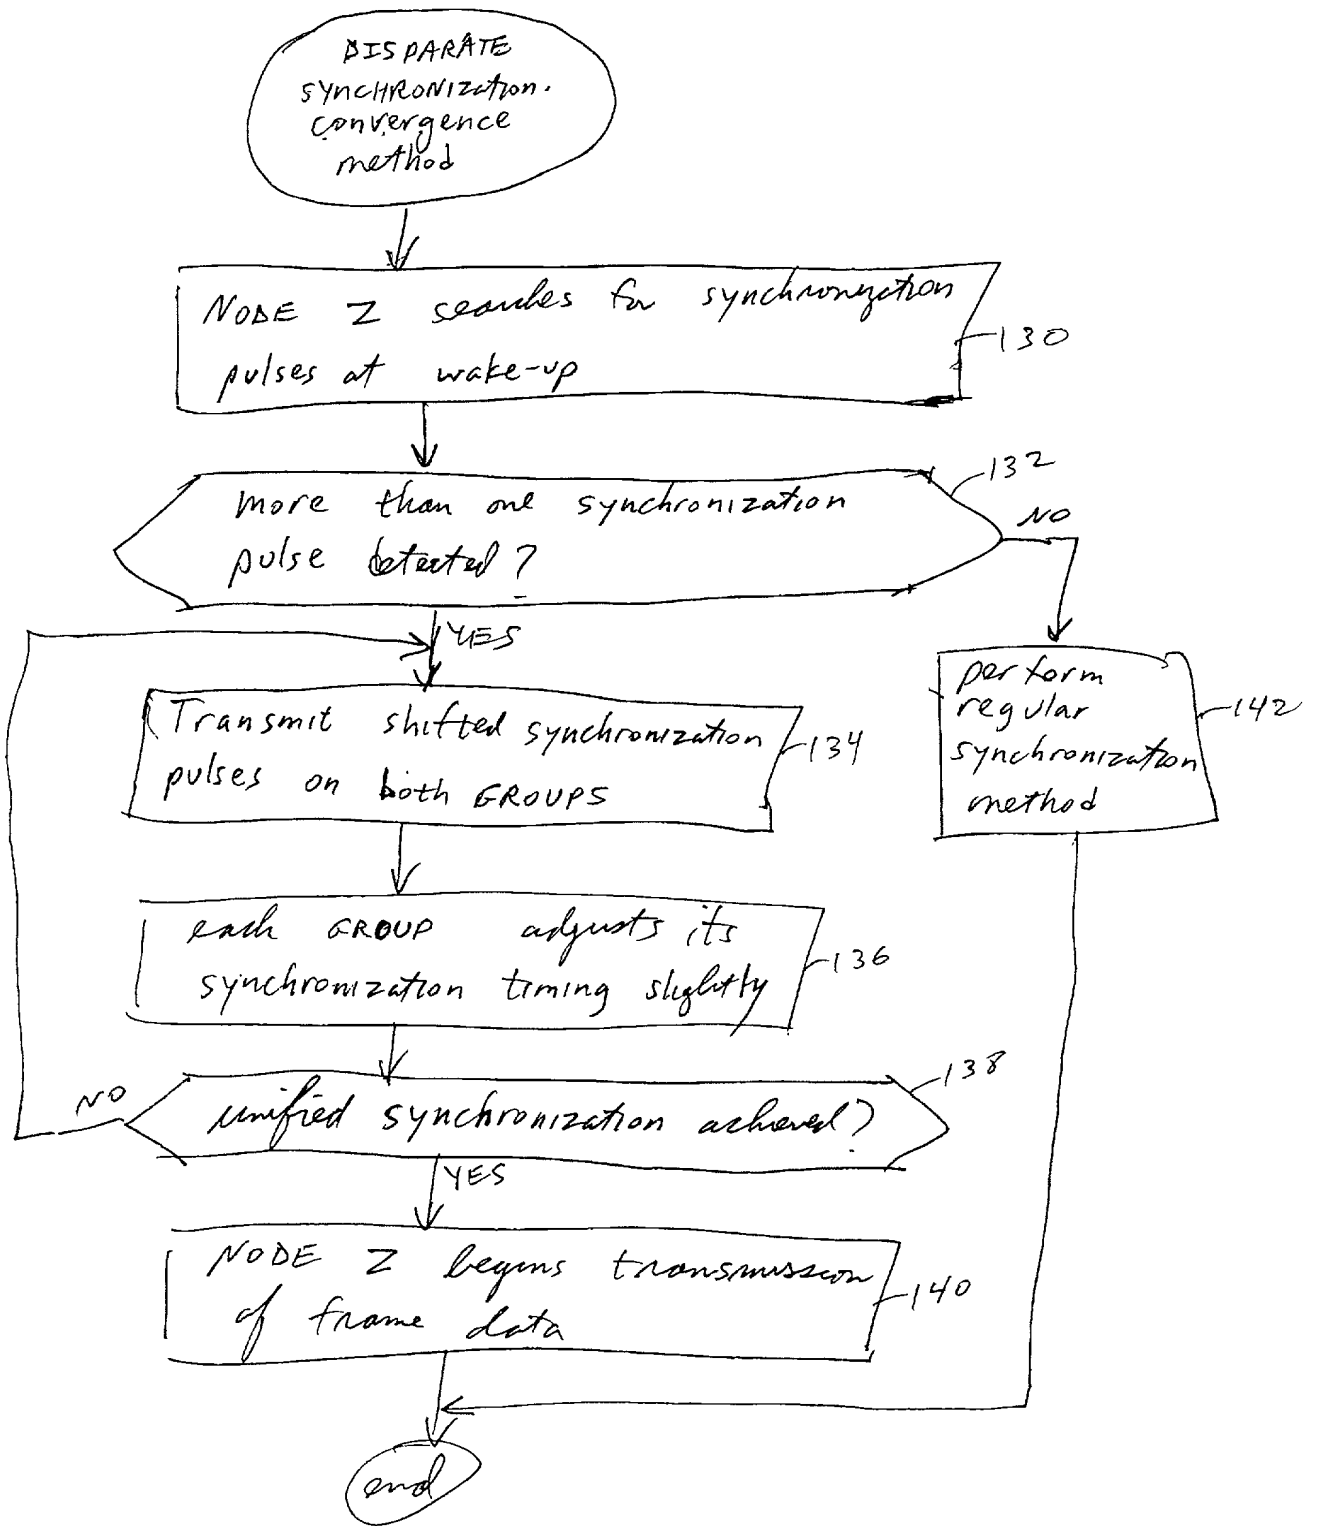 DISPARATE
SYNCHRONIZATION.
convergence
method
NODE Z searches for synchronization
pulses at wake-up
130
more than one synchronization
pulse detected?
132
NO
YES
Transmit shifted synchronization
pulses on both GROUPS
134
perform
regular
synchronization
method
142
each GROUP adjusts its
synchronization timing slightly
136
unified synchronization achieved?
138
NO
YES
NODE Z begins transmission
of frame data
140
end